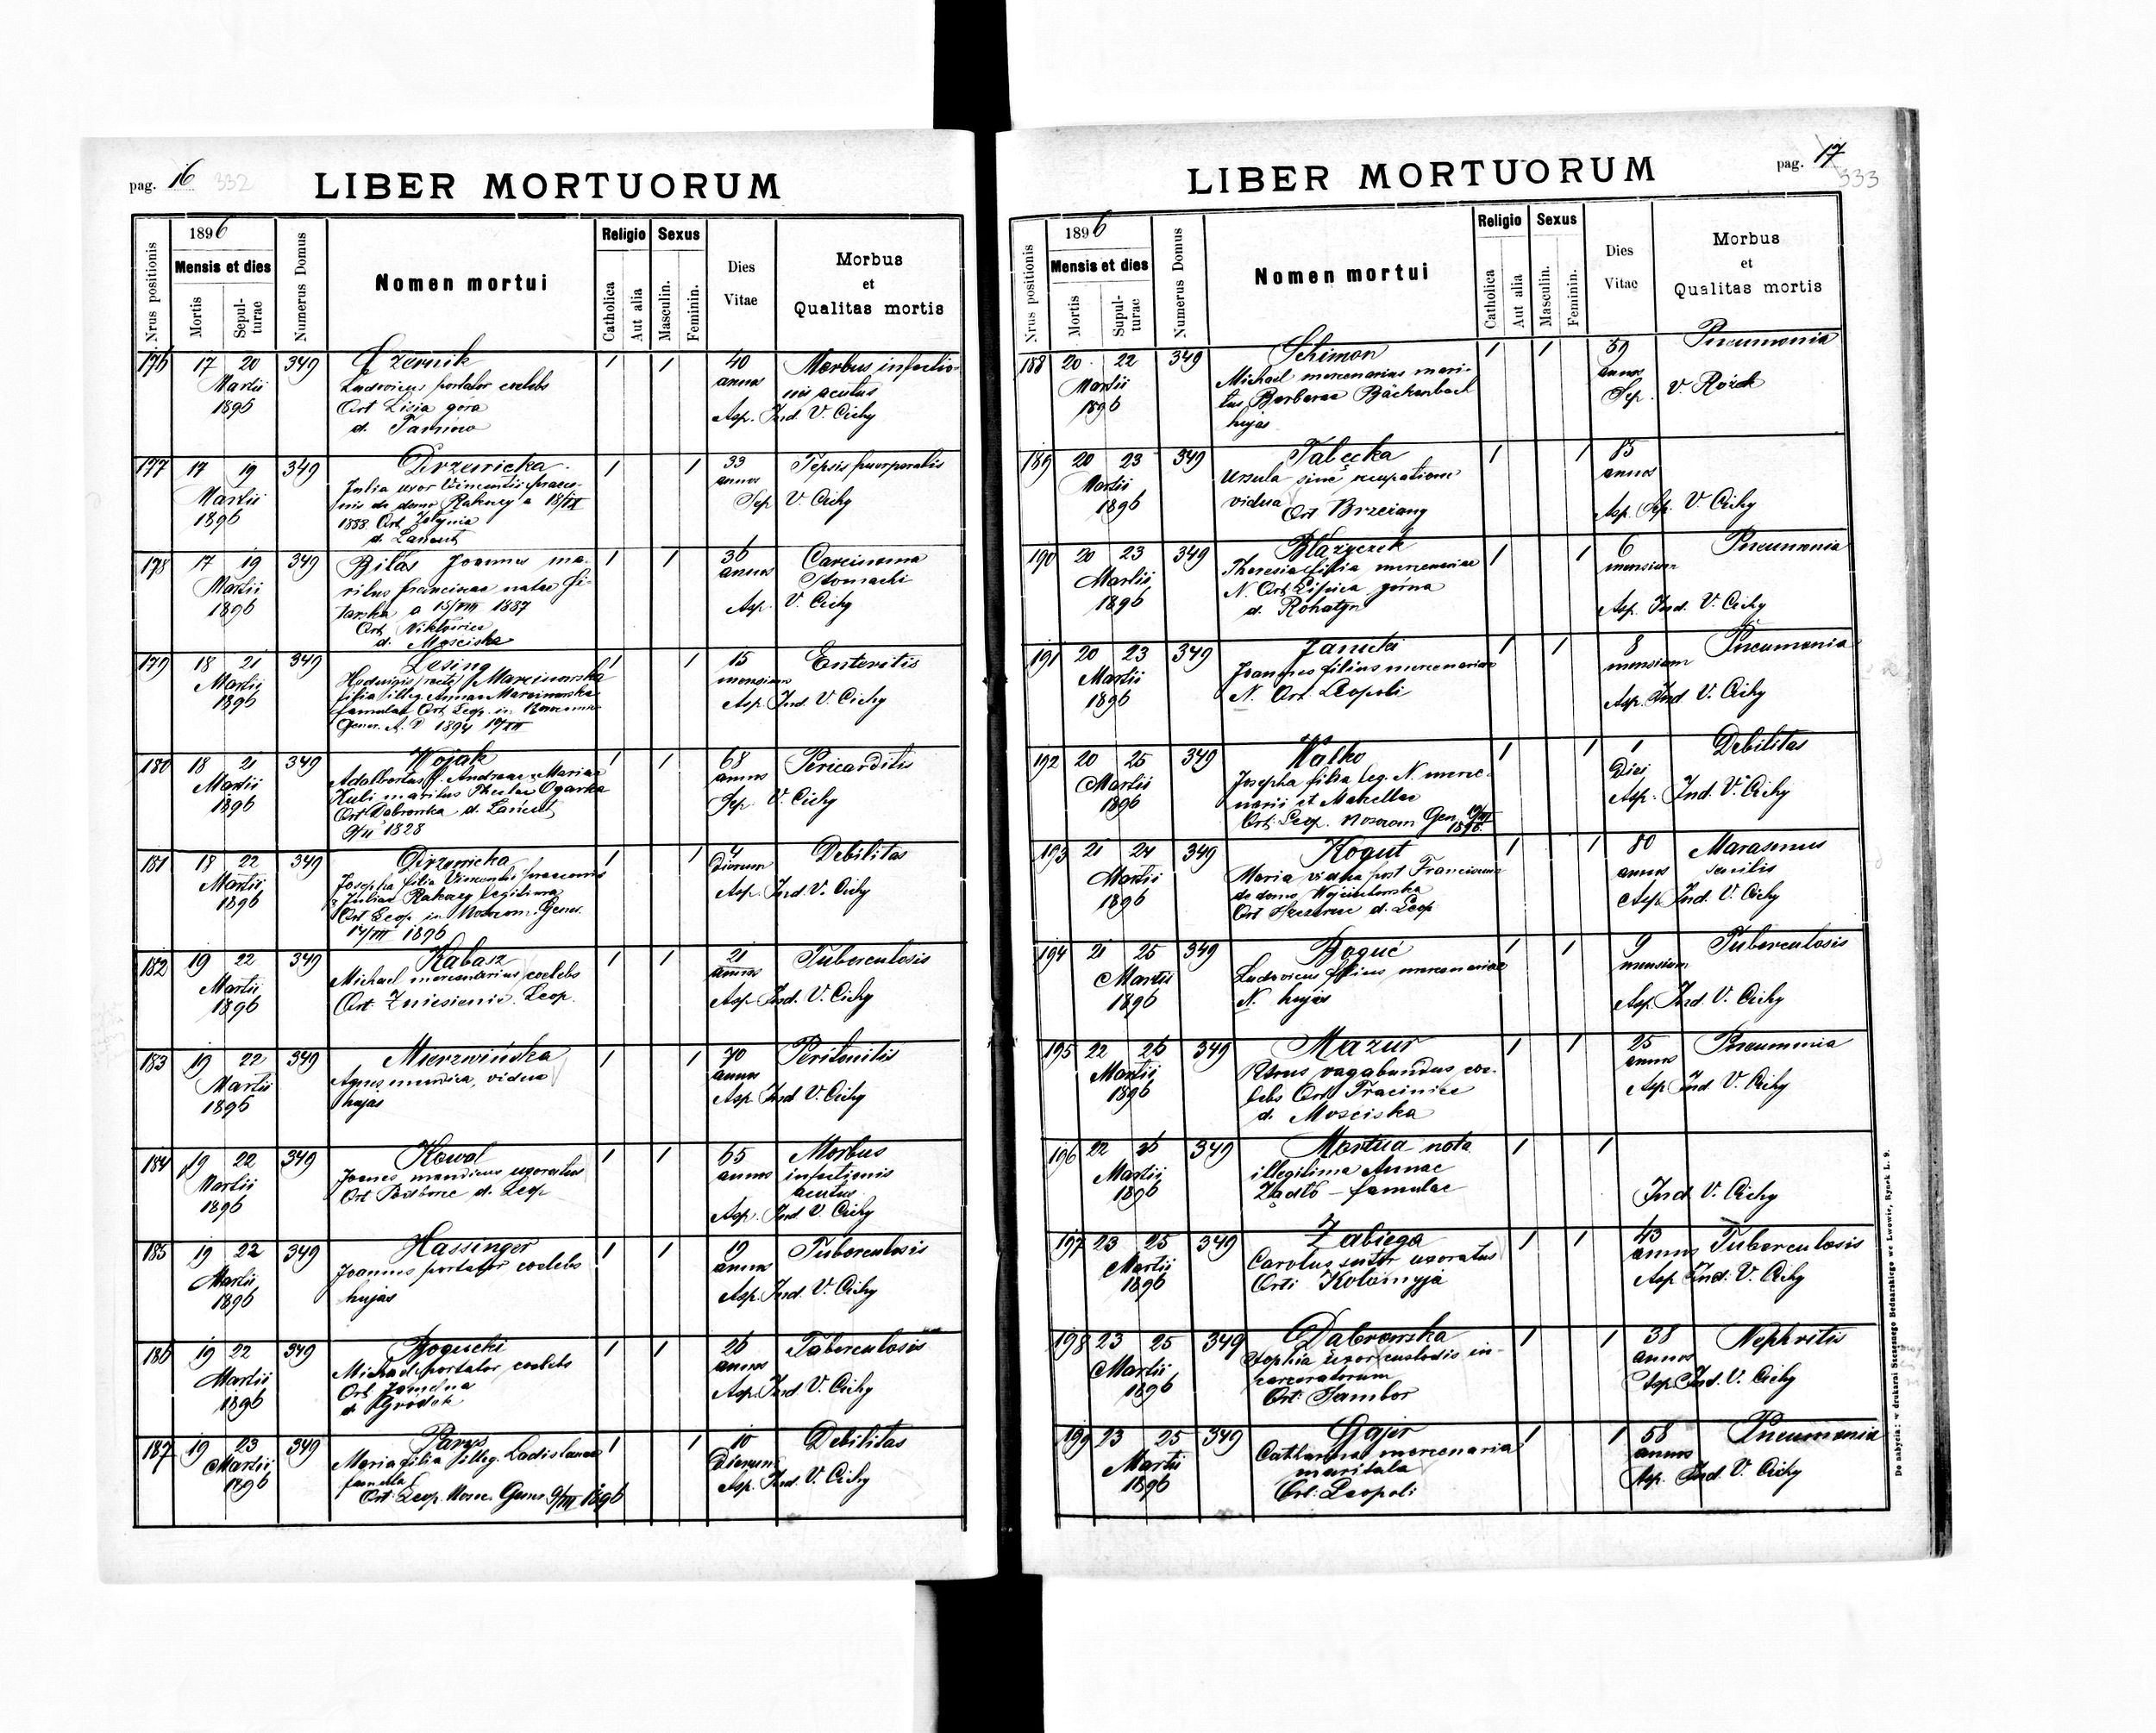 pag. 16 332
LIBER MORTUORUM
Nrus positionis
1896
Mensis et dies
Mortis
Sepulturae
Numerus Domus
Nomen mortui
Religio
Catholica
Aut alia
Sexus
Masculin.
Feminin.
Dies Vitae
Morbus et Qualitas mortis
176 17 20 349 Czernik 1 1 40 Morbus infectio-
Martii Ludovicus portator coelebs annos nis acutus
1896 Ort Lisia góra Asp. Ind V. Cichy
d. Tarnów
177 17 19 349 Drzewicka 1 1 33 Sepsis puerperalis
Martii Julia uxor Vincentii praeco- annos
1896 nis de domo Rakoczy a 18/IX Sep V. Cichy
1888 Ort Żołynia
d. Łańcut
178 17 19 349 Bilas Joannes ma- 1 1 36 Carcinoma
Martii ritus Franciscae natae annos Stomachi
1896 a 15/VIII 1887 Asp. V. Cichy
Ort
d. Mościska
179 18 21 349 Lesing 1 1 15 Enteritis
Martii Hedwigis recte Marcinowska mensium
1896 filia illeg. Annae Marcinowska Asp. Ind V. Cichy
famulae Ort Leop. in
Gener. A. D 1894
180 18 21 349 Wojak 1 1 68 Pericarditis
Martii Adalbertus f. Andreae Mariae annos
1896 Kuli maritus Theclae Ogarka Sep V. Cichy
Ort Dabrowka d. Łańcut
9/II 1828
181 18 22 349 Drzewicka 1 1 4 Debilitas
Martii Josepha filia Vincentii praeconis Dierum
1896 Juliae Rakoczy legitima Asp. Ind V. Cichy
Ort Leop in Nosocom. Gener.
14/III 1896
182 19 22 349 Kabasz 1 1 21 Tuberculosis
Martii Michael mercenarius coelebs annos
1896 Ort Zniesienie Leop. Asp Ind. V. Cichy
183 19 22 349 Mierzwińska 1 1 70 Peritonitis
Martii Agnes mendica, vidua annos
1896 hujas Asp. Ind V. Cichy
184 19 22 349 Kowal 1 1 65 Morbus
Martii Joannes mendicus uxoratus annos infectionis
1896 Ort d. Leop acutus
Asp. Ind. V. Cichy
185 19 22 349 Hassinger 1 1 19 Tuberculosis
Martii Joannes portator coelebs annos
1896 hujas Asp. Ind. V. Cichy
186 19 22 349 Bogucki 1 1 26 Tuberculosis
Martii Michael portator coelebs annos
1896 Ort Asp. Ind V. Cichy
d. Gródek
187 19 23 349 Parys 1 1 10 Debilitas
Martii Maria filia illeg. Ladislavae Dierum
1896 famula Asp. Ind. V. Cichy
Ort Leop. Nosoc. Gener 9/III 1896
pag. 17 333
LIBER MORTUORUM
Nrus positionis
1896
Mensis et dies
Mortis
Supulturae
Numerus Domus
Nomen mortui
Religio
Catholica
Aut alia
Sexus
Masculin.
Feminin.
Dies Vitae
Morbus et Qualitas mortis
188 20 22 349 Schimon 1 1 59 Pneumonia
Martii Michael mercenarius mari- annos
1896 tus Barbarae Bäckenbach Sep. V. Rózek
hujas
189 20 23 349 Tabęcka 1 1 85
Martii Ursula sine occupatione annos
1896 vidua Ort Brzeżany Asp. Sep. V. Cichy
190 20 23 349 Błażyczek 1 1 6 Pneumonia
Martii Theresia filia mercenariae mensium
1896 N. Ort Lipica górna Asp. Ind. V. Cichy
d. Rohatyn
191 20 23 349 Janicki 1 1 8 Pneumonia
Martii Joannes filius mercenariae mensium
1896 N. Ort Leopoli Asp. Ind V. Cichy
192 20 25 349 Watko 1 1 1 Debilitas
Martii Josepha filia leg. N. merce- Diei
1896 narii et Marcellae Asp. Ind. V. Cichy
Ort Leop. Nosocom Gen 19/III
1896
193 21 24 349 Kogut 1 1 80 Marasmus
Martii Maria vidua post Franciscum annos senilis
1896 de domo Wojciechowska Asp. Ind. V. Cichy
Ort Szczerzec d. Leop
194 21 25 349 Boguć 1 1 9 Tuberculosis
Martii Ludovicus filius mercenariae mensium
1896 N. hujas Asp. Ind. V. Cichy
195 22 26 349 Mazur 1 1 25 Pneumonia
Martii Petrus vagabundus coe- annos
1896 lebs Ort Asp Ind V. Cichy
d. Mościska
196 22 26 349 Mortua nata 1 1
Martii illegitima Annae
1896 Żądło - famulae Ind V. Cichy
197 23 25 349 Zabiega 1 1 43 Tuberculosis
Martii Carolus sutor uxoratus annos
1896 Orti Kołomyja Asp Ind. V. Cichy
198 23 25 349 Dabrowska 1 1 38 Nephritis
Martii Sophia uxor custodis in- annos
1896 carceratorum Asp. Ind. V. Cichy
Ort: Sambor
199 23 25 349 Gajer 1 1 58 Pneumonia
Martii Catharina mercenaria annos
1896 maritata Asp. Ind. V. Cichy
Ort: Leopoli
De nabycia: w drukarni Szczęsnego Bednarskiego we Lwowie, Rynek L. 9.